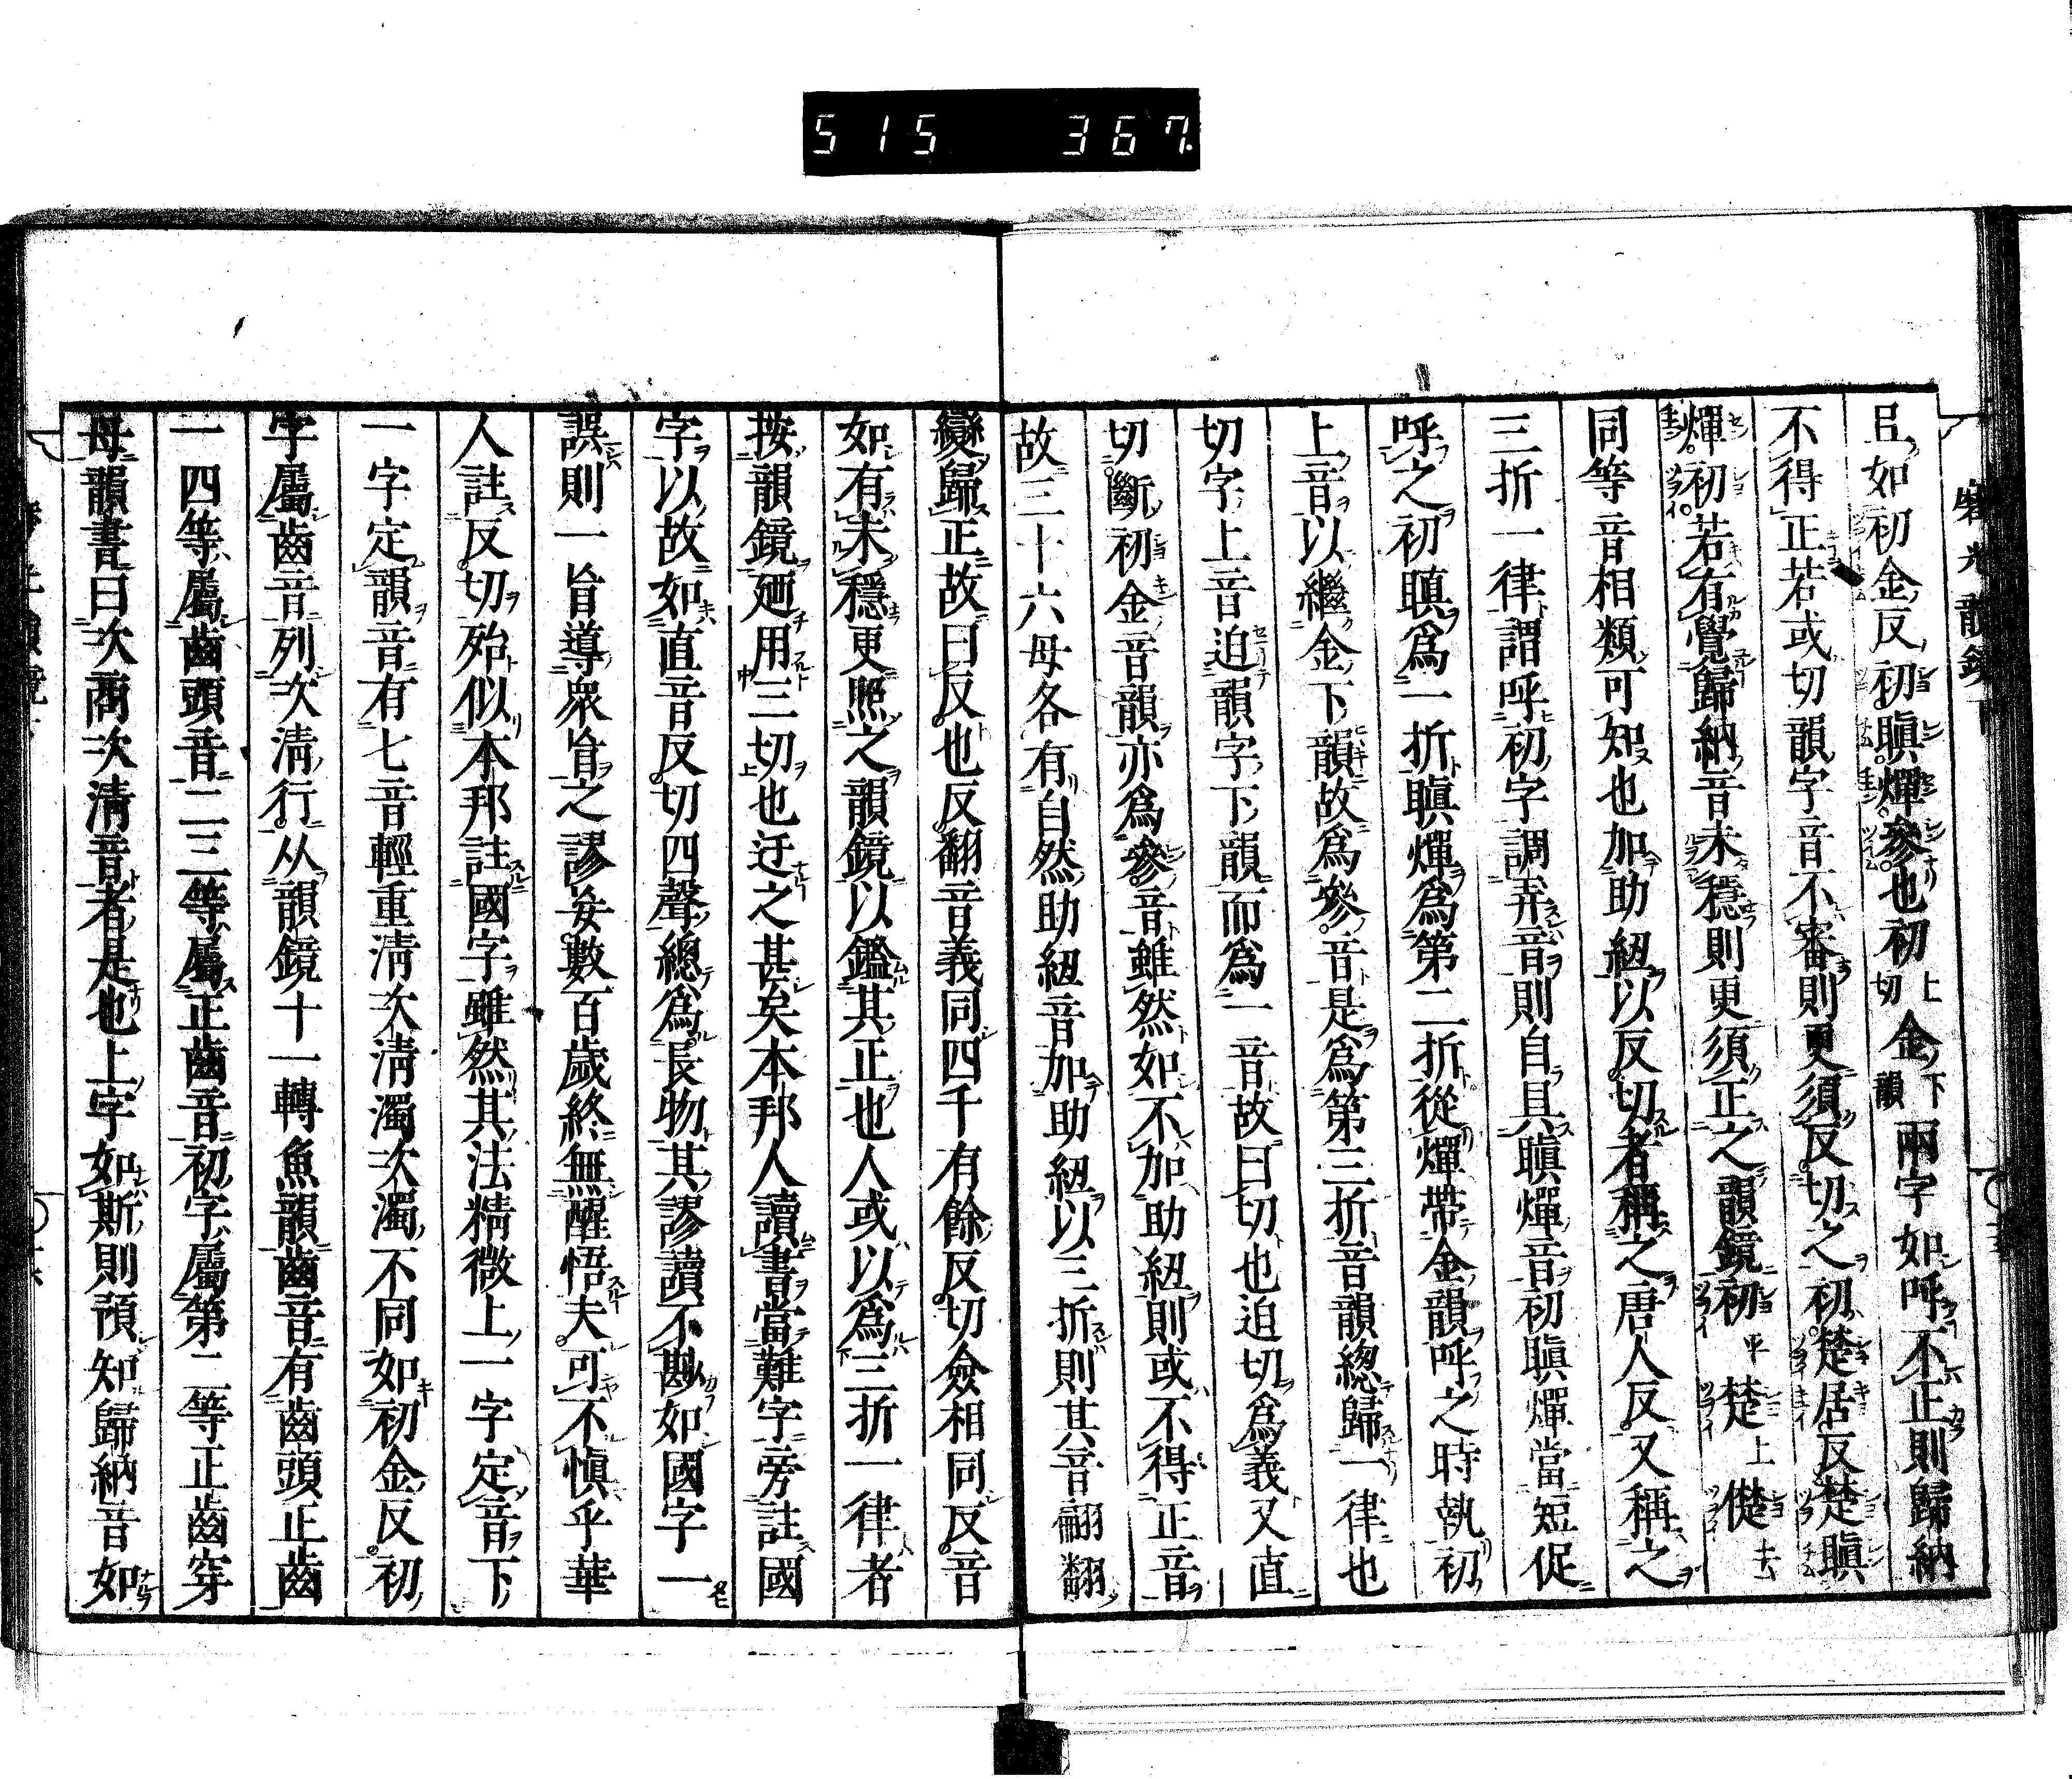 515 367
磨光韻鏡下
㠯如初金反初瞋燀參也初上切金下韻兩字如呼不正則歸納
不得正若或切韻字音不審則更須反切之初楚居反楚瞋
燀初若有覺歸納音未穩則更須正之韻鏡初平楚上憷去
同等音相類可知也加助紐以反切者稱之唐人反又稱之
三折一律謂呼初字調弄音則自具瞋燀音初瞋燀當短促
呼之初瞋爲一折瞋燀爲第二折從燀帶金韻呼之時執初
上音以繼金下韻故爲參音是爲第三折音韻總歸一律也
切字上音迫韻字下韻而爲一音故曰切也迫切爲義又直
切斷初金音韻亦爲參音雖然如不加助紐則或不得正音
故三十六母各有自然助紐音加助紐以三折則其音翩翻
變歸正故曰反也反翻音義同四千有餘反切僉相同反音
如有未穩更照之韻鏡以鑑其正也人或以爲三折一律者
按韻鏡廻用三切也迂之甚矣本邦人讀書當難字旁註國
字以故如直音反切四聲總爲長物其謬讀不尠如國字一
誤則一盲導衆盲之謬妄數百歲終無醒悟夫可不愼乎華
人註反切殆似本邦註國字雖然其法精微上一字定音下
一字定韻音有七音輕重淸次淸濁次濁不同如初金反初
字屬齒音列次淸行从韻鏡十一轉魚韻齒音有齒頭正齒
一四等屬齒頭音二三等屬正齒音初字屬第二等正齒穿
母韻書曰次商次淸音者是也上字如斯則預知歸納音如